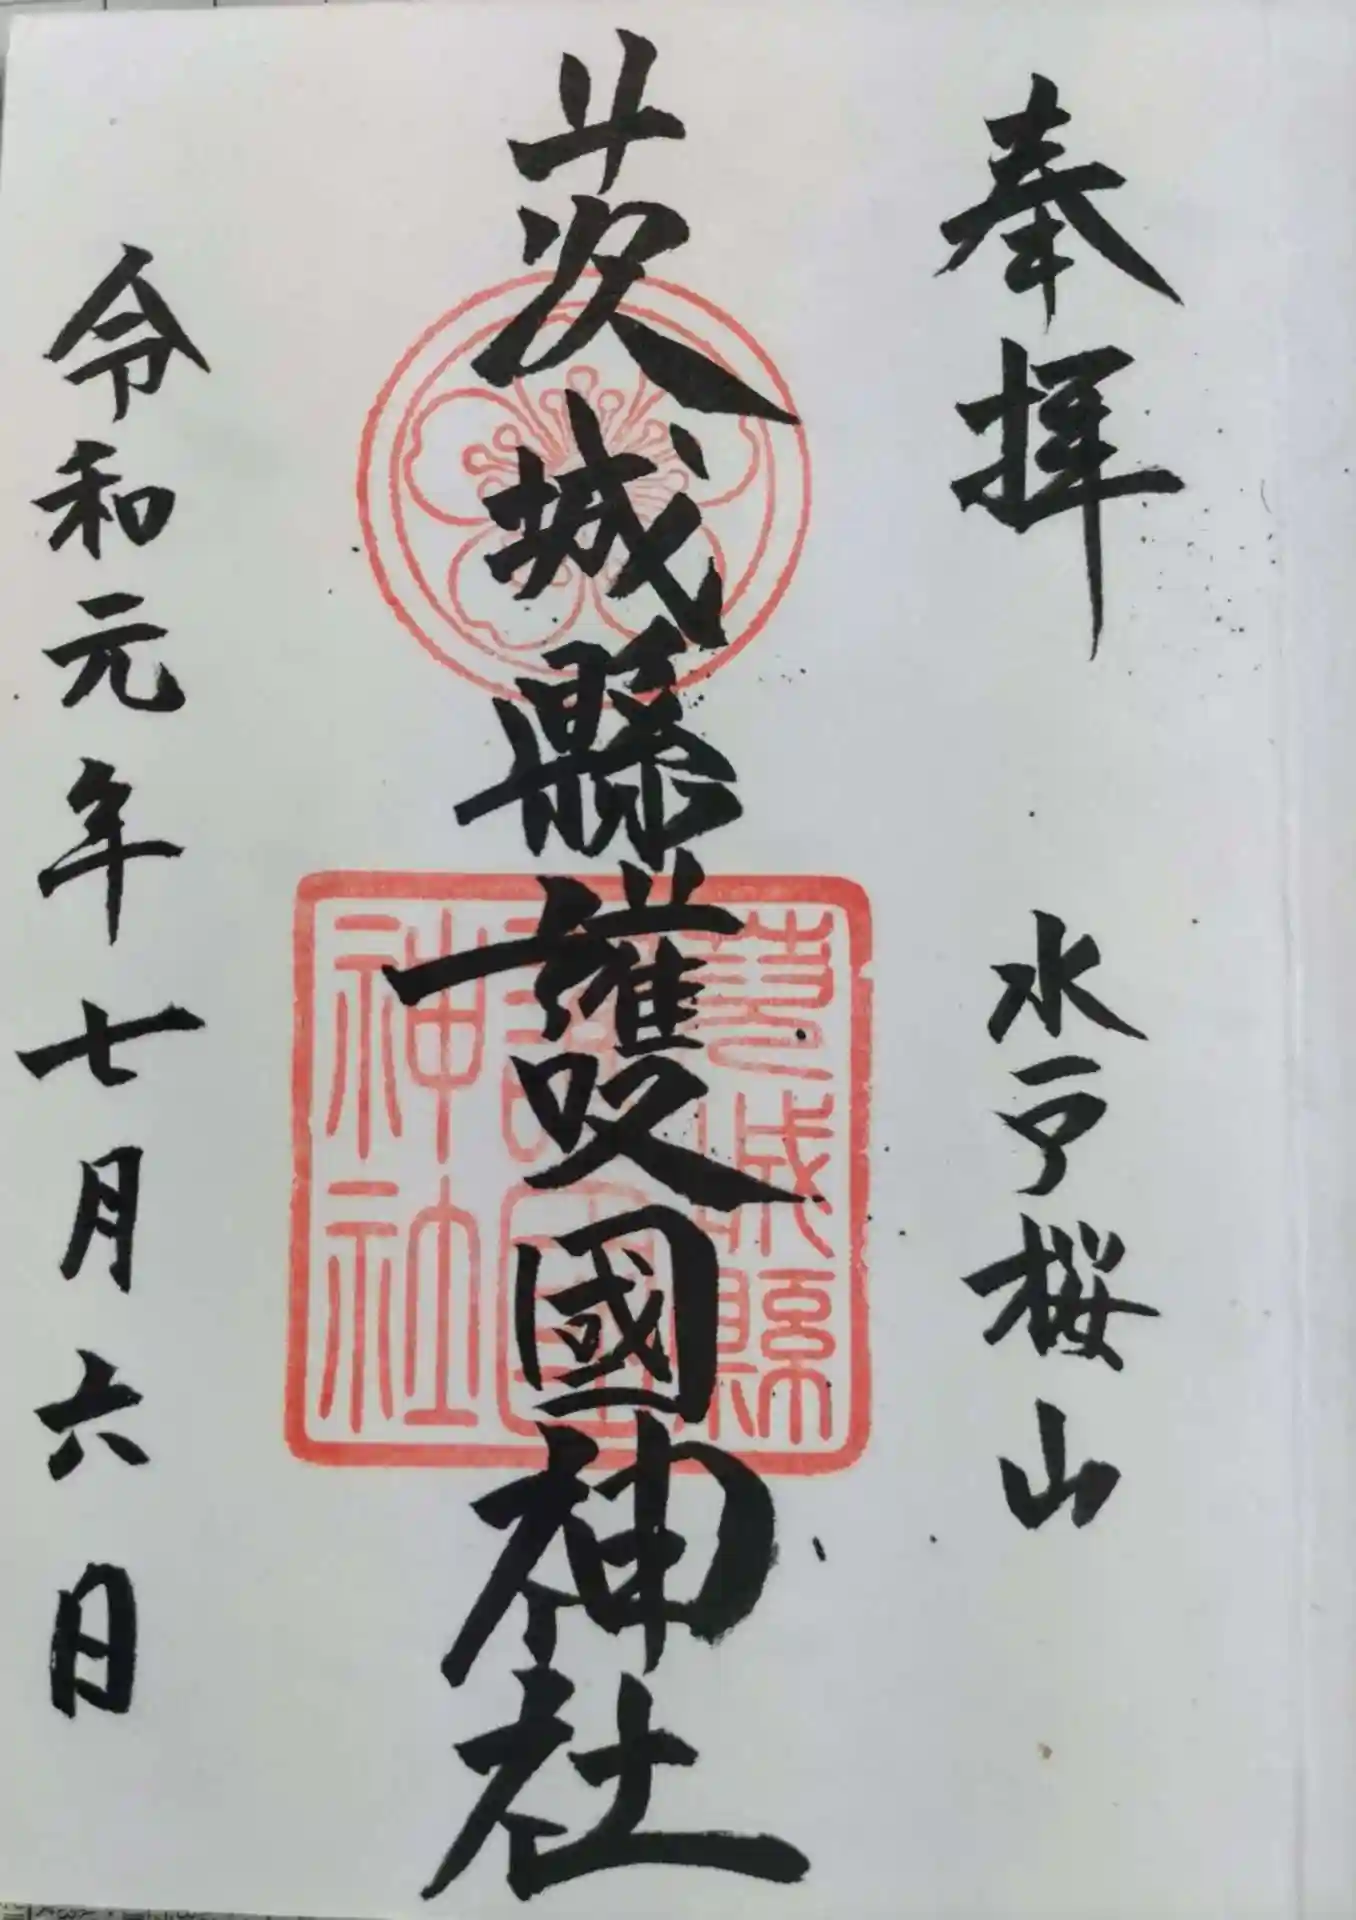 奉拝 水戸桜山
茨城縣護國神社
茨城縣
護國
神社
令和元年七月六日